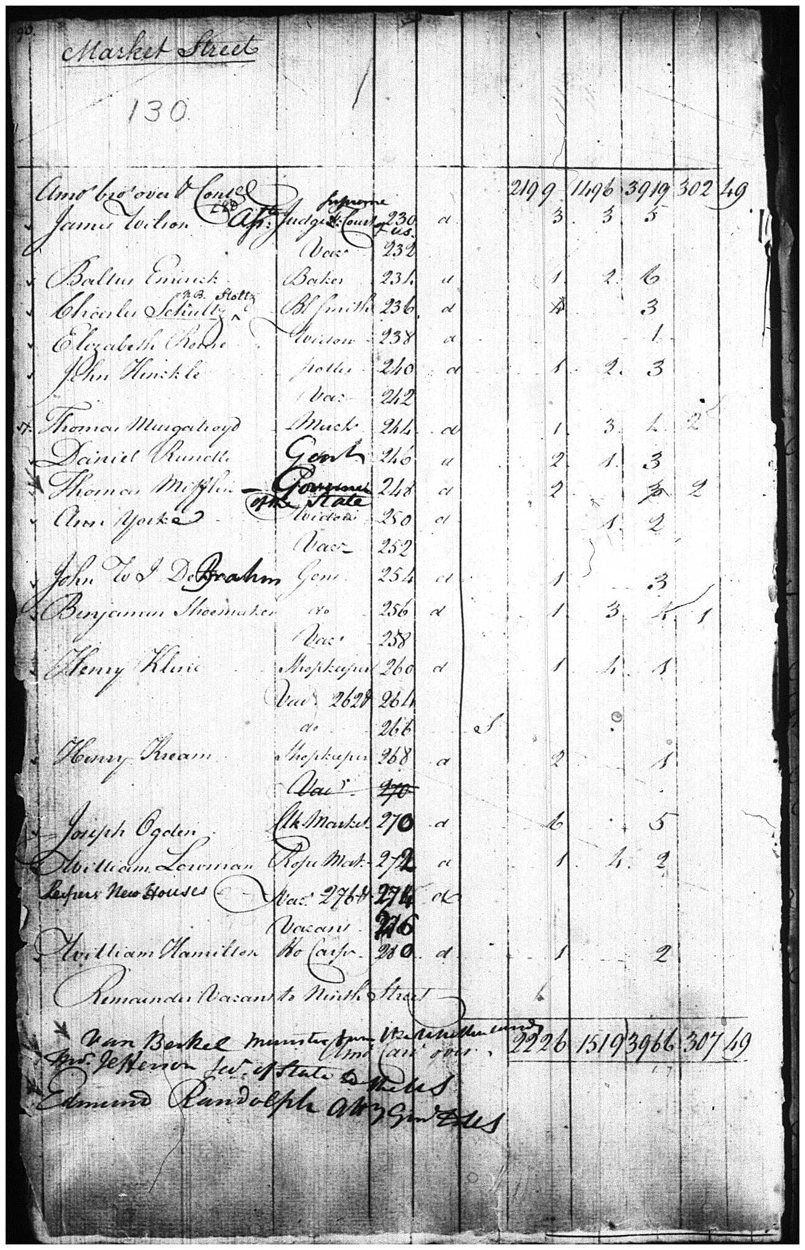 Market Street
130
Amot bro't over & Cont'd 2199 1496 3919 302 49
James Wilson Judge Supreme Court of US. 230 d 3 3 5
Vact 232
Baltus Emerick Baker 234 d 1 2 6
Charles Schultz Bl Smith 236 d 4 3
Elizabeth Widow 238 d 1
John Hinckle potter 240 d 1 2 3
Vact 242
Thomas Murgatroyd Mercht 244 d 1 3 2
Daniel Rundle Gent 246 d 2 1 3
Thomas Mifflin Governor of the State 248 d 2 3 2
Ann Yorke Widow 250 d 1 2
Vact 252
John W I De Brahm Gent 254 d 1 3
Benjamin Shoemaker do 256 d 1 3 4 1
Vact 258
Henry Kline Shopkeeper 260 d 1 4 1
Vact 262 & 264
do 266
Henry Kream Shopkeeper 268 d 2 1
Vact 270
Joseph Ogden Clk Market 270 d 6 5
William Lowman Rope Mak 272 d 1 4 2
New Houses Vact 276 & 274 d
Vacant 276
William Hamilton Ho Carpr 280 d 1 2
Remainder Vacant to Ninth Street
Van Berkel Minister from
Amot carr over 2226 1519 3966 307 49
Jefferson Sec. of State to the US
Edmund Randolph Atty Genl US